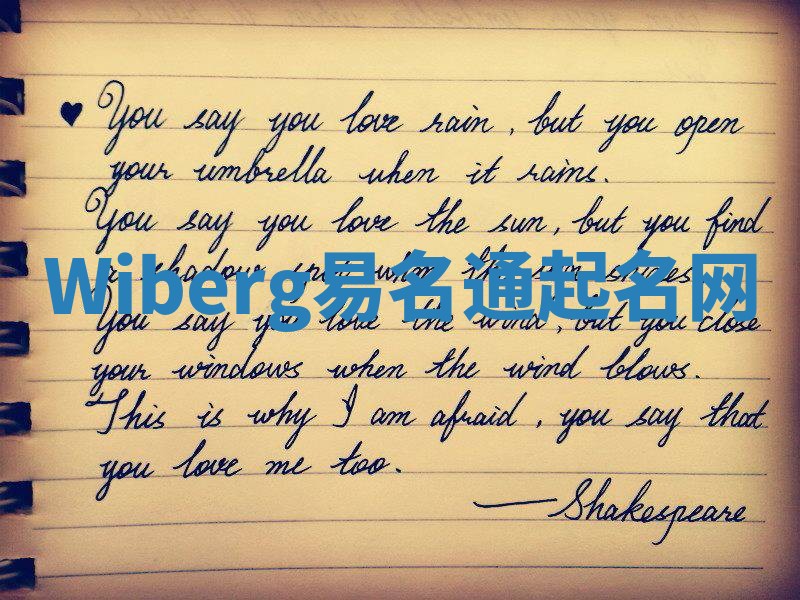 ♥ You say you love rain, but you open
your umbrella when it rains.
You say you love the sun, but you find
a shadow spot when the sun shines.
Wiberg易名通起名网
You say you love the wind, but you close
your windows when the wind blows.
This is why I am afraid, you say that
you love me too.
—Shakespeare